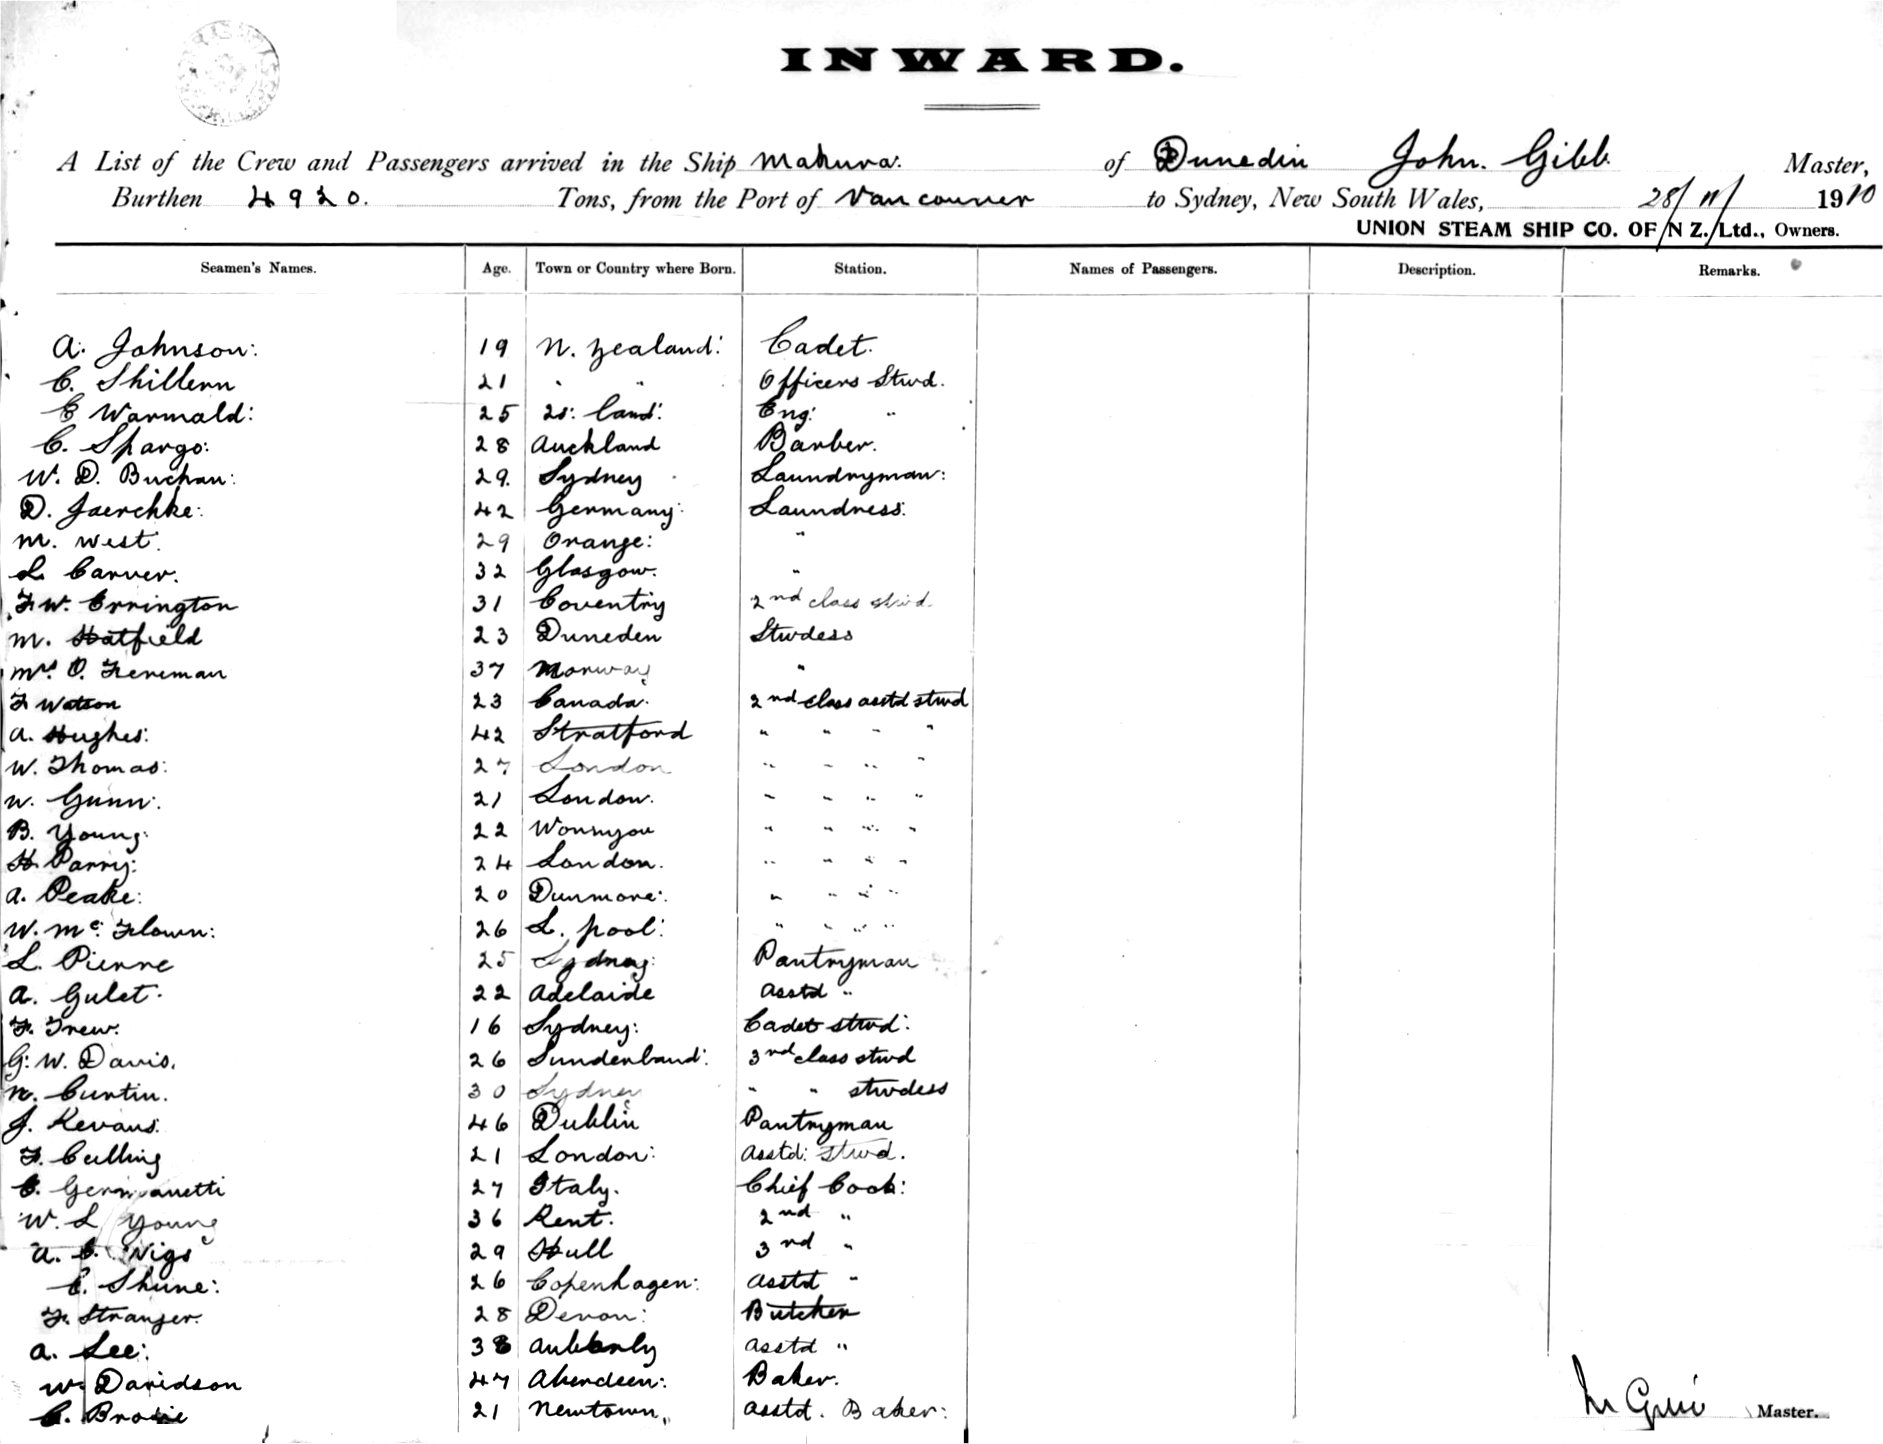 INWARD.
A List of the Crew and Passengers arrived in the Ship Makura. of Dunedin John. Gibb. Master,
Burthen 4920. Tons, from the Port of Vancouver to Sydney, New South Wales, 28/11/1910
UNION STEAM SHIP CO. OF N Z. Ltd., Owners.
Seamen's Names. Age. Town or Country where Born. Station. Names of Passengers. Description. Remarks.
A. Johnson: 19 N. Zealand: Cadet.
C. Skillern 21 " " Officers Stwd.
E Warmald: 25 land: Eng: "
C. Spargo: 28 Auckland Barber.
W. D. Buchan: 29. Sydney Laundryman:
D. Jaerchke: 42 Germany: Laundress:
M. West: 29 Orange: "
L. Carver. 32 Glasgow. "
F. W. Errington 31 Coventry 2nd class stwd.
M. Hatfield 23 Duneden Stwdess
Mrs. O. 37 Norway "
F Watson 23 Canada. 2nd class asstd stwd
A. Hughes: 42 Stratford " " " "
W. Thomas: 27 London " " " "
W. Gunn: 21 London. " " " "
B. Young: 22 " " " "
H. Parry: 24 London. " " " "
A. Peake: 20 Dunmore: " " " "
W. Mc: Flown: 26 L. pool: " " " "
L. Pierre 25 Sydney: Pantryman
A. Gulet. 22 Adelaide Asstd "
F. Trew. 16 Sydney: Cadet stwd:
G. W. Davis. 26 Sunderland: 3rd class stwd
N. Curtin. 30 Sydney " " stwdess
J. Kevans: 46 Dublin Pantryman
F. Culling 21 London: Asstd: Stwd.
C. Germanetti 27 Italy. Chief Cook:
W. L Young 36 Kent. 2nd "
A. E. Nigs 29 Hull 3rd "
C. Shune: 26 Copenhagen: Asstd "
F. Stranger. 28 Devon: Butcher
A. Lee: 38 Asstd "
W. Davidson 47 Aberdeen: Baker.
C. Brodie 21 Newtown, Asstd. Baker:
Master.